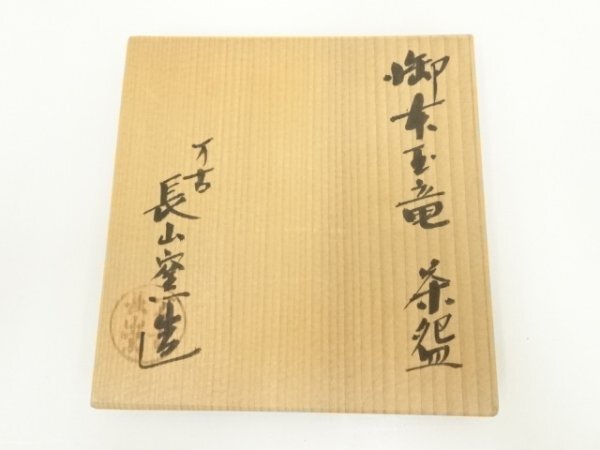 御本玉竜 茶盌
万古
長山窯造